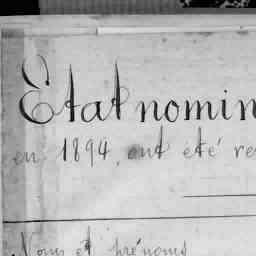 Etat nomin
en 1894, ont été re
Noms et prénoms